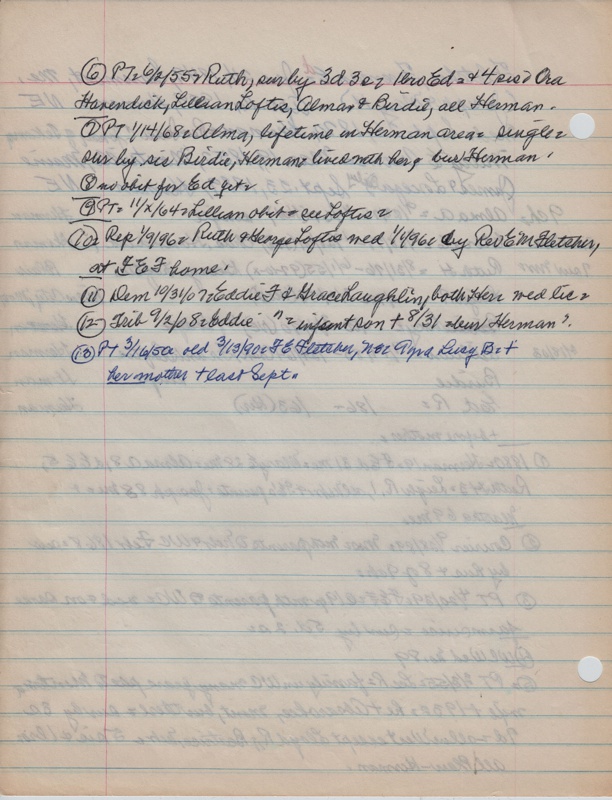 ⑥ PT = 6/2/55 = Ruth, sur by 3d 3s = 1 bro Ed = & 4 sis = Ora
Havendick, Lillian Loftis, Alma & Birdie, all Herman.
⑦ PT 1/14/68 = Alma, lifetime in Herman area = single =
sur by sis Birdie, Herman = lived with her, bur Herman.
⑧ no obit for Ed yet =
⑨ PT = 11/x/64 = Lillian obit = see Loftis =
⑩ = Rep 1/9/96 = Ruth & George Loftis wed 1/1/96 = by Rev E M Fletcher,
at F E F home.
⑪ Dem 10/31/07 = Eddie F & Grace Laughlin, both Her = wed lic =
⑫ = Trib 9/2/08 = Eddie " = infant son + 8/31 = bur Herman.
⑬ PT 3/16/50 = old 3/13/90 = F E Fletcher, Lucy B = +
her mother + last Sept =